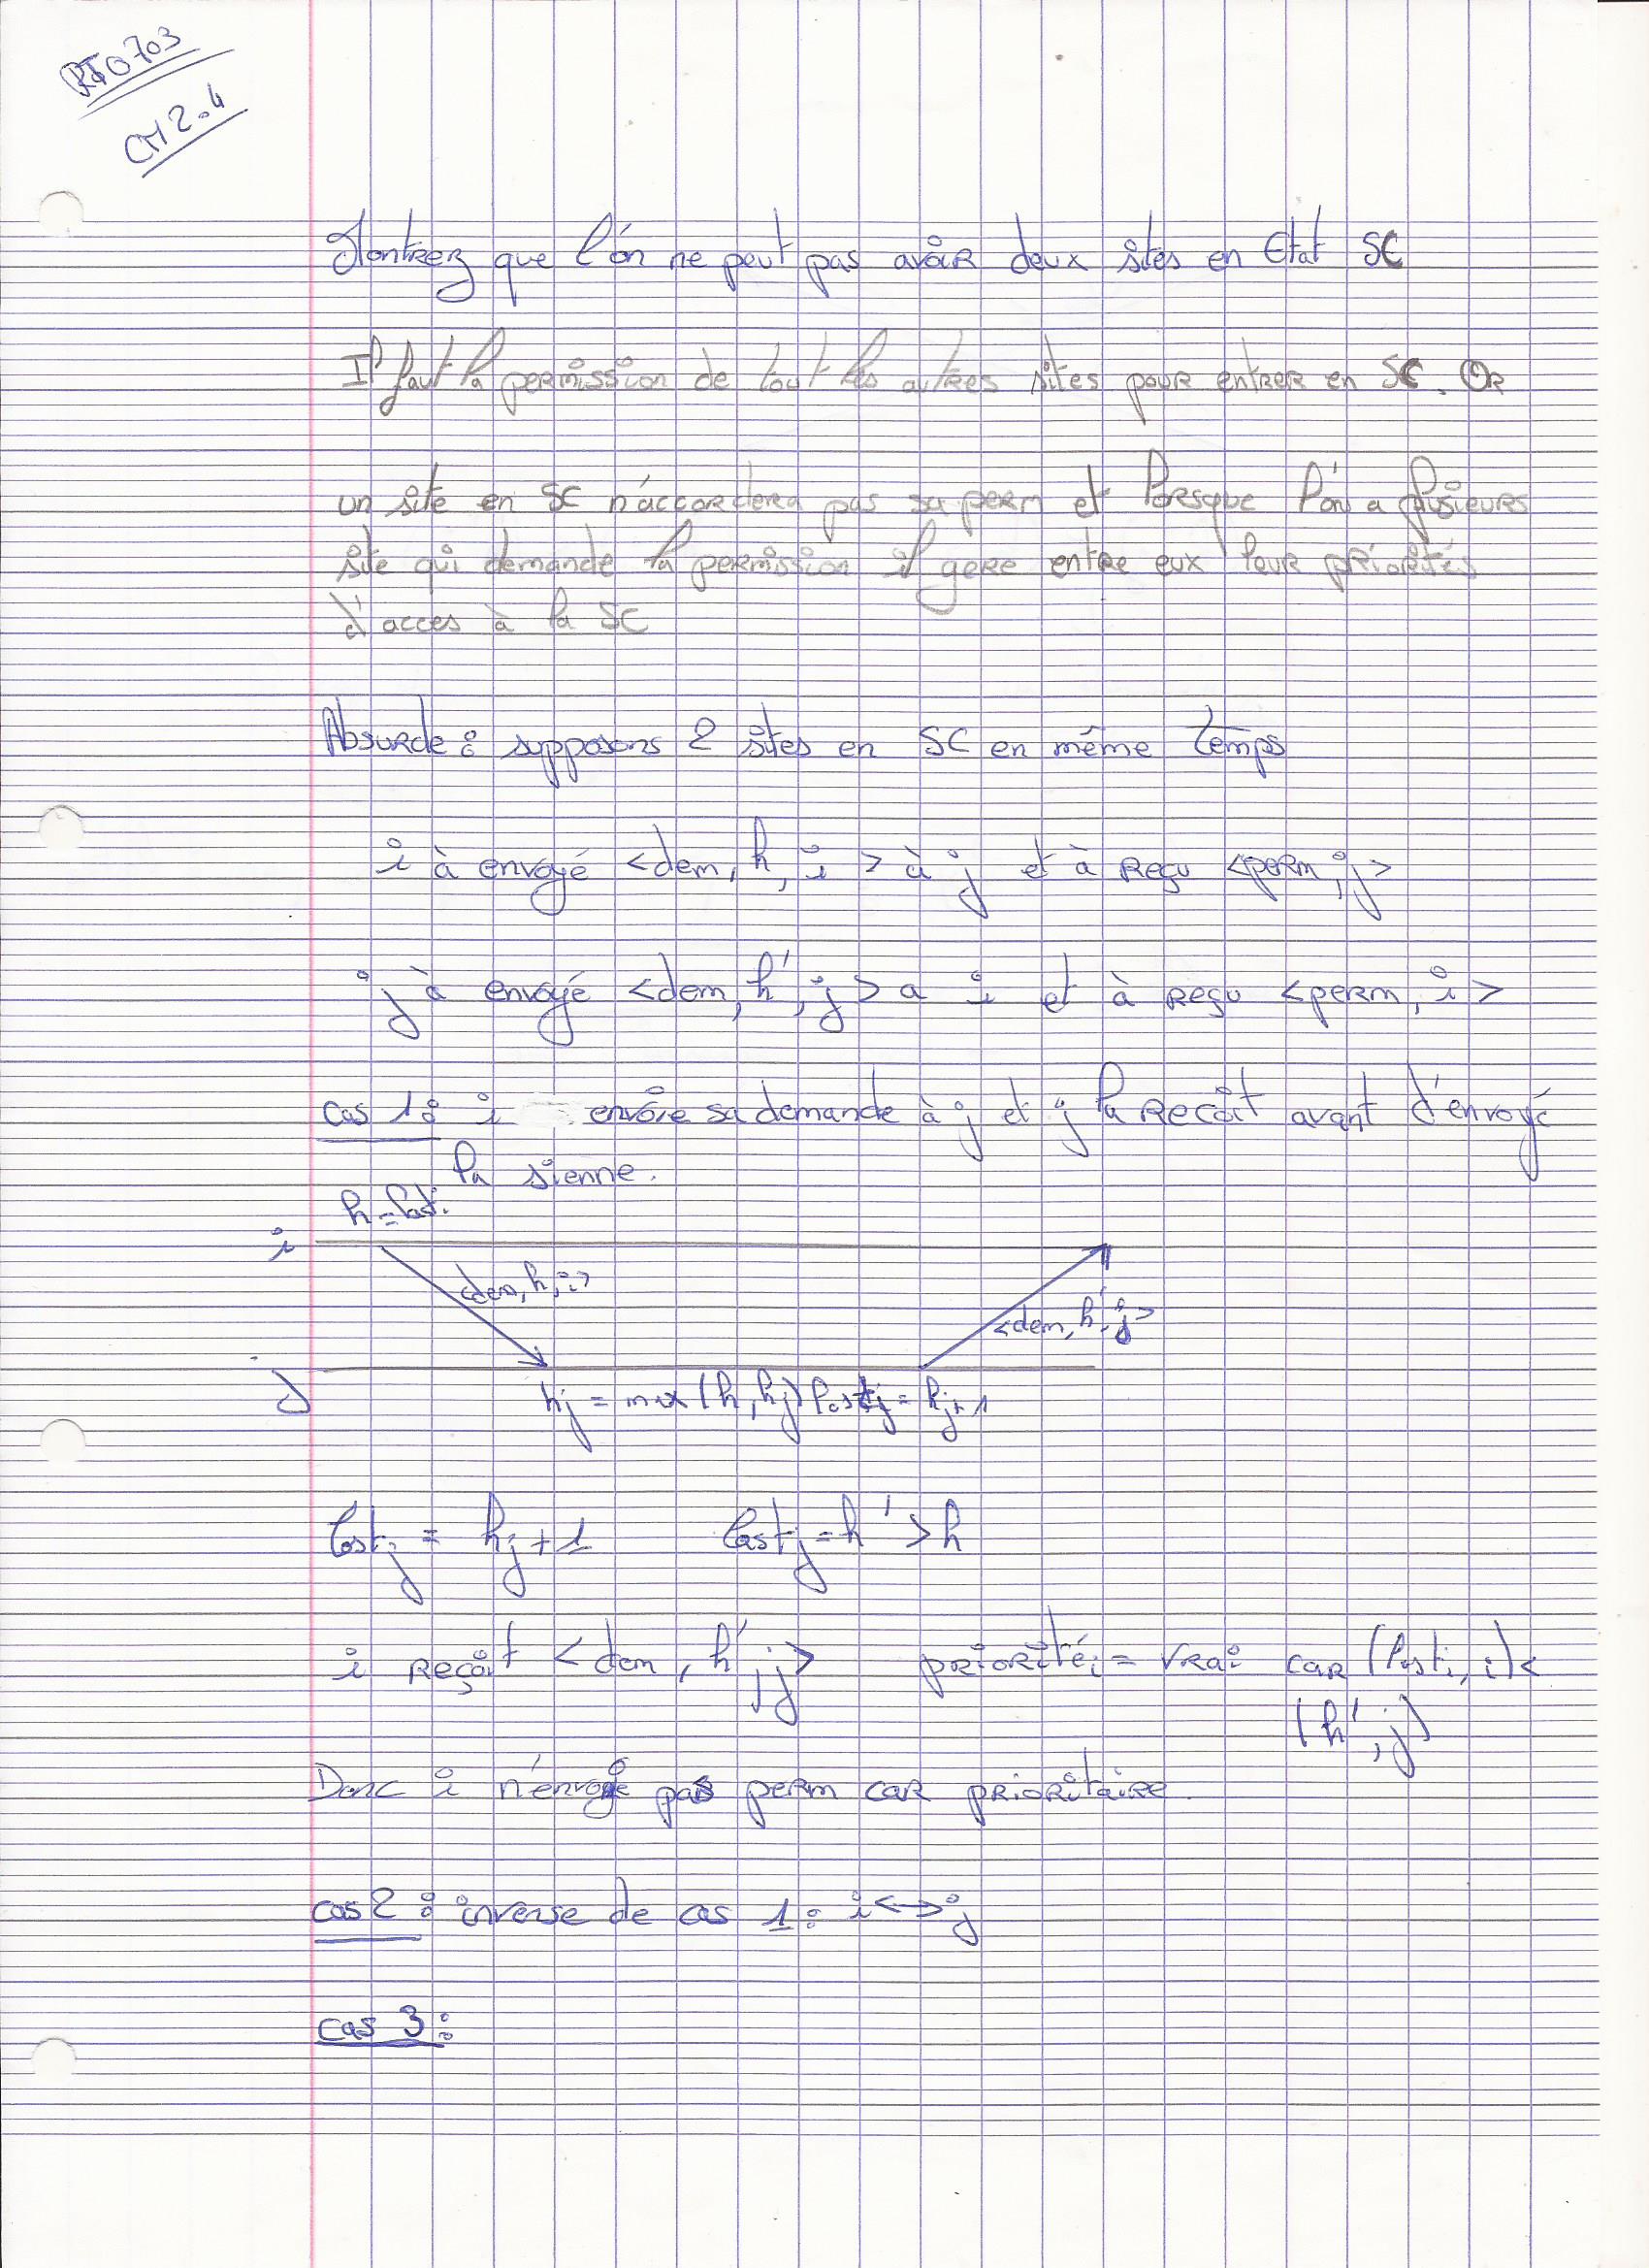 RT0703
CM 2.4
Montrez que l'on ne peut pas avoir deux sites en Etat SC
Il faut la permission de tout les autres sites pour entrer en SC. Or
un site en SC n'accordera pas sa perm et lorsque l'on a plusieurs
site qui demande la permission il gere entre eux leur priorités
d'acces à la SC
Absurde : supposons 2 sites en SC en même temps
i à envoyé <dem, h, i > à j et à reçu <perm, j>
j à envoyé <dem, h', j > a i et à reçu <perm, i >
cas 1 : i envoie sa demande à j et j la reçoit avant d'envoyé
la sienne.
h = lasti
i
<dem, h, i>
<dem, h', j>
j
hj = max (h, hj) lastj = hj + 1
lastj = hj + 1 lastj = h' > h
i reçoit < dem, h', j > prioritéi = vrai car (lasti, i) <
(h', j)
Donc i n'envoie pas perm car prioritaire.
cas 2 : inverse de cas 1 : i <-> j
cas 3 :